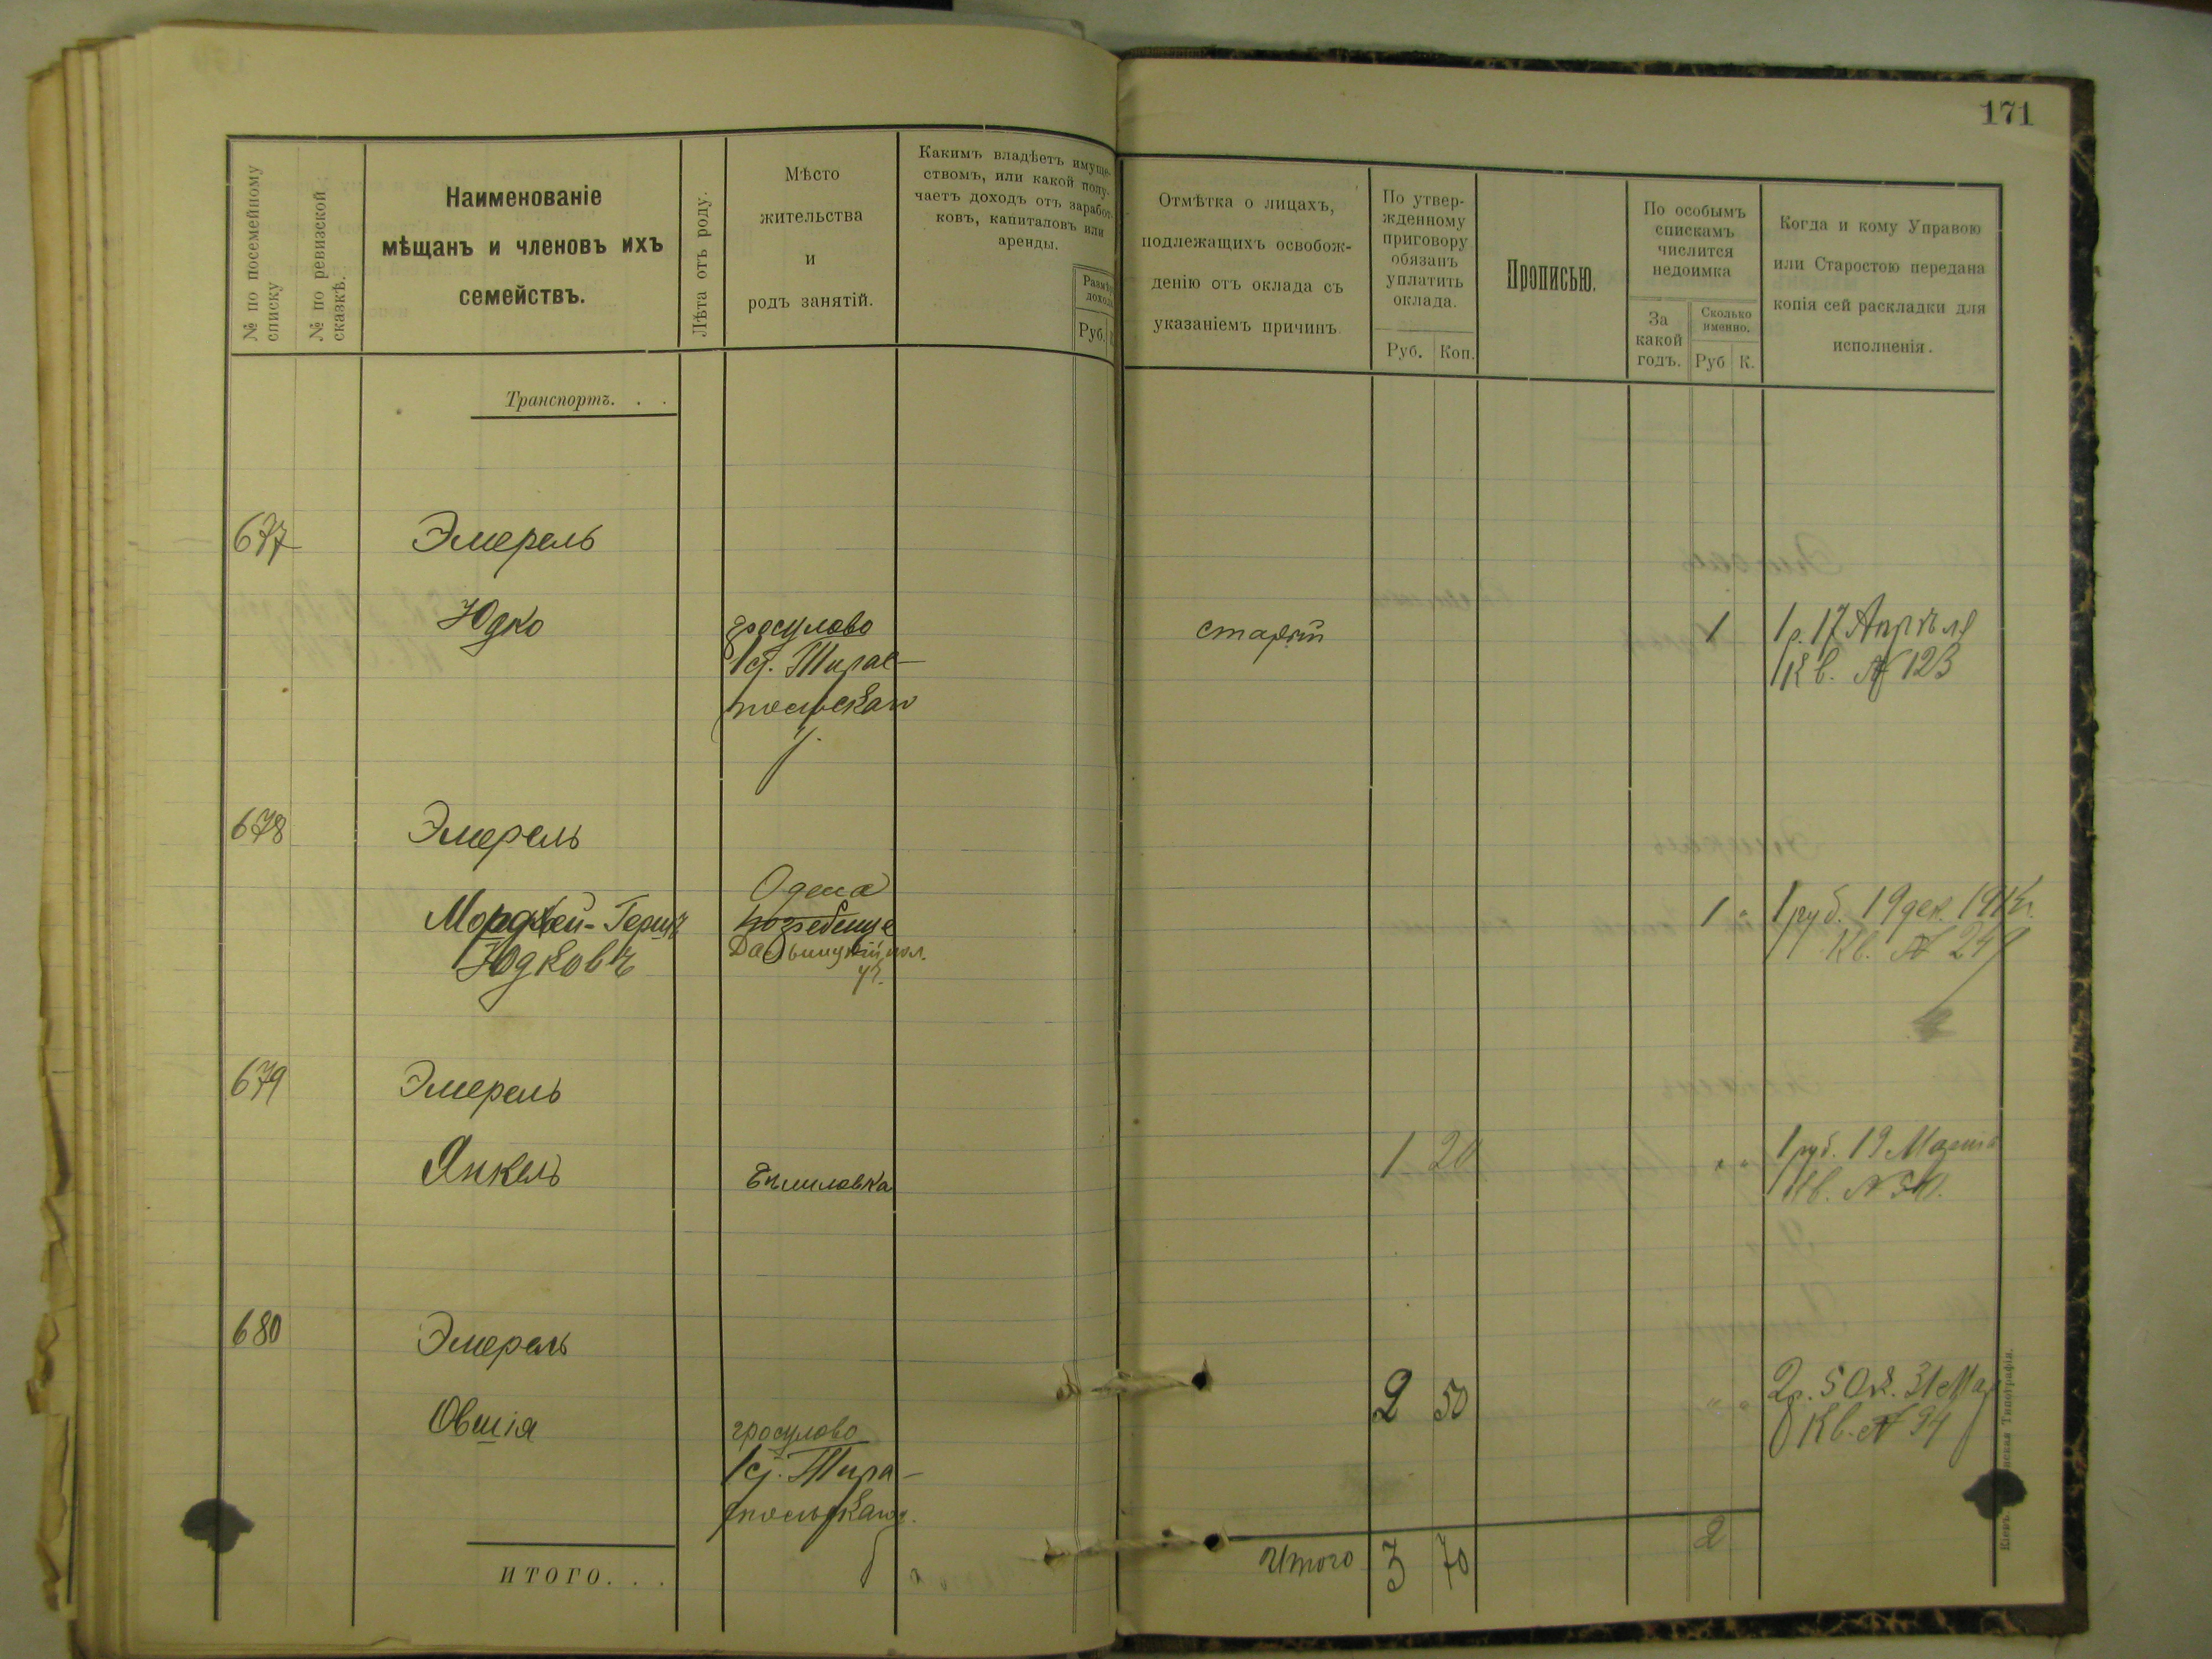 171
№ по посемейному списку
№ по ревизской сказкѣ.
Наименованіе
мѣщанъ и членовъ ихъ
семействъ.
Лѣта отъ роду.
Мѣсто
жительства
и
родъ занятій.
Какимъ владѣетъ имуще-
ствомъ, или какой полу-
чаетъ доходъ отъ заработ-
ковъ, капиталовъ или
аренды.
Размѣръ
дохода
Руб.
Отмѣтка о лицахъ,
подлежащихъ освобож-
денію отъ оклада съ
указаніемъ причинъ.
По утвер-
жденному
приговору
обязанъ
уплатить
оклада.
Руб. Коп.
Прописью.
По особымъ
спискамъ
числится
недоимка
За
какой
годъ.
Сколько
именно.
Руб К.
Когда и кому Управою
или Старостою передана
копія сей раскладки для
исполненія.
Транспортъ. . .
677 Эмерель
Юдко гросулово старый 1 1 р. 17 Апрѣля
Тирас- Кв. № 123
польскаго
у.
678 Эмерель
Одесса
Мордхей-Гершъ 1 " 1 руб. 19 дек.
Юдковъ Кв. № 249
уч.
679 Эмерель
Янкель 1 20 1 руб. 19 Марта
Кв. №
680 Эмерель
Овшія гросулово 2 50 " " 2 р. 50 к. 31 Мар
Тира- Кв. № 94
польскаго у.
ИТОГО. . . Итого 3 70 2
Типографія.